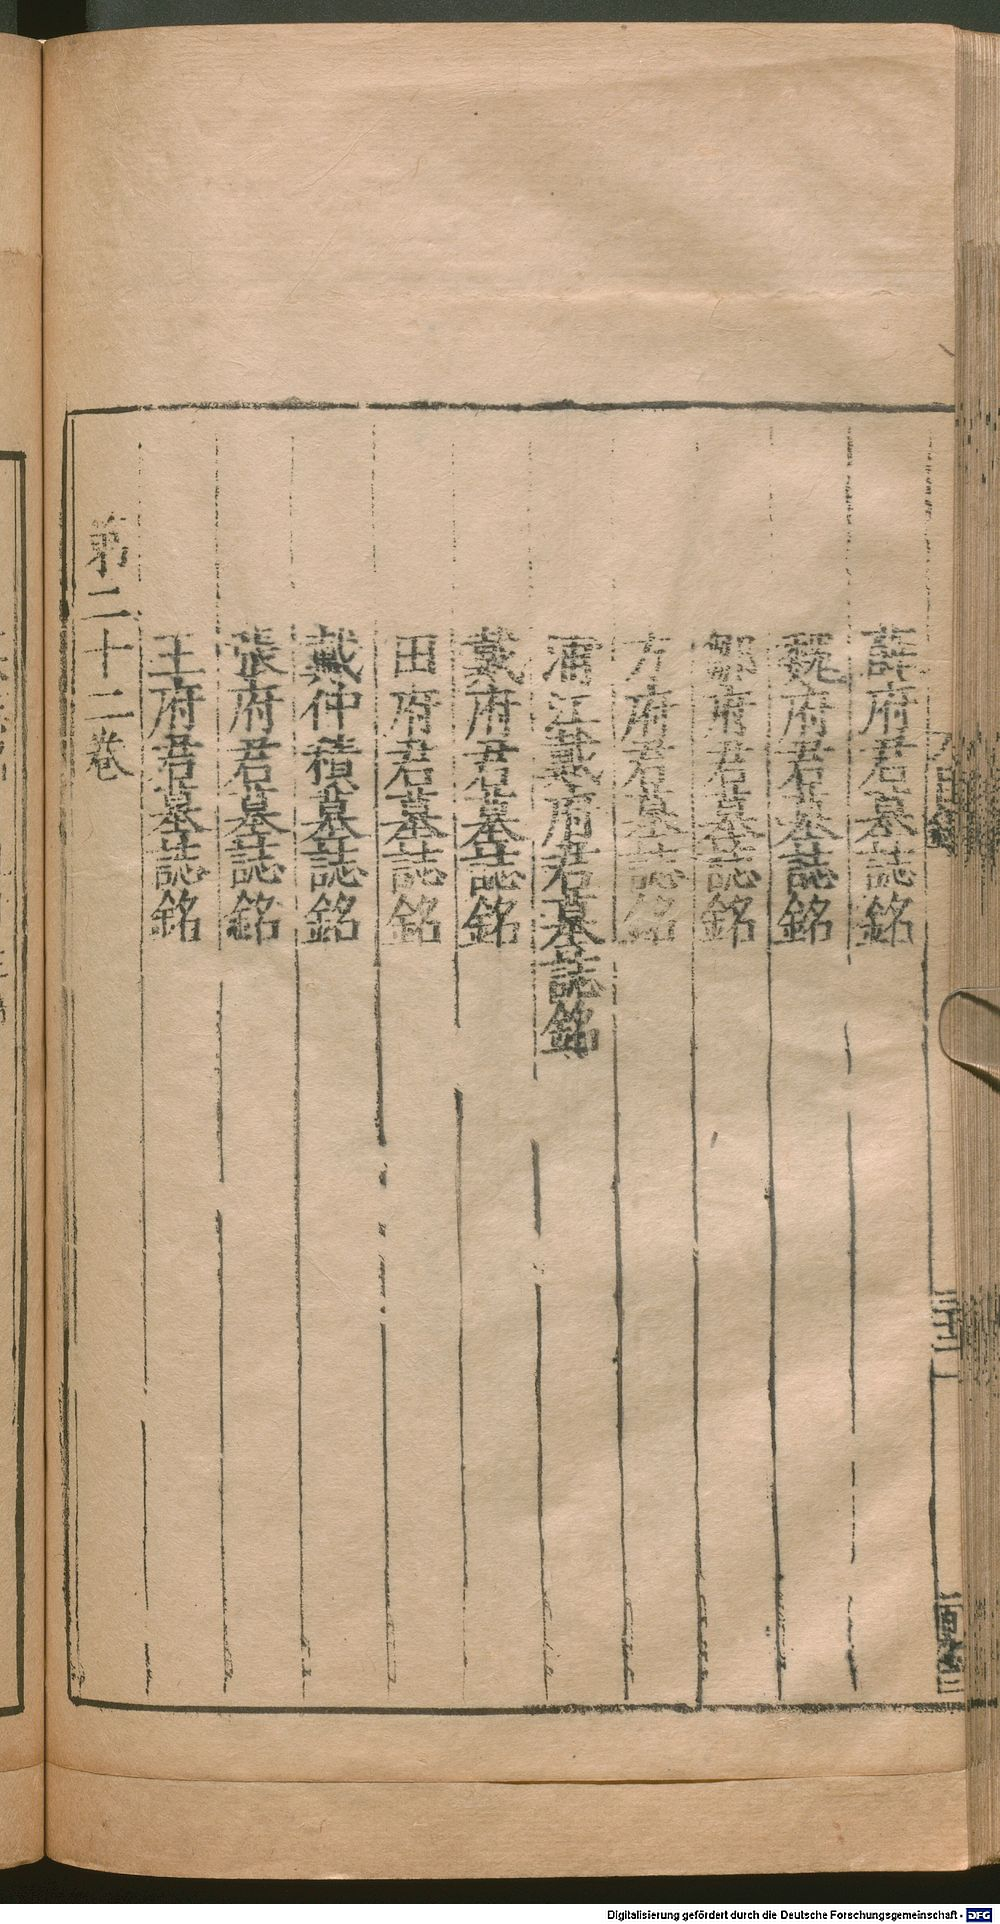 薛府君墓誌銘
魏府君墓誌銘
鄒府君墓誌銘
方府君墓誌銘
浦江戴府君墓誌銘
戴府君墓誌銘
田府君墓誌銘
戴仲積墓誌銘
張府君墓誌銘
王府君墓誌銘
第二十二卷
Digitalisierung gefördert durch die Deutsche Forschungsgemeinschaft - DFG